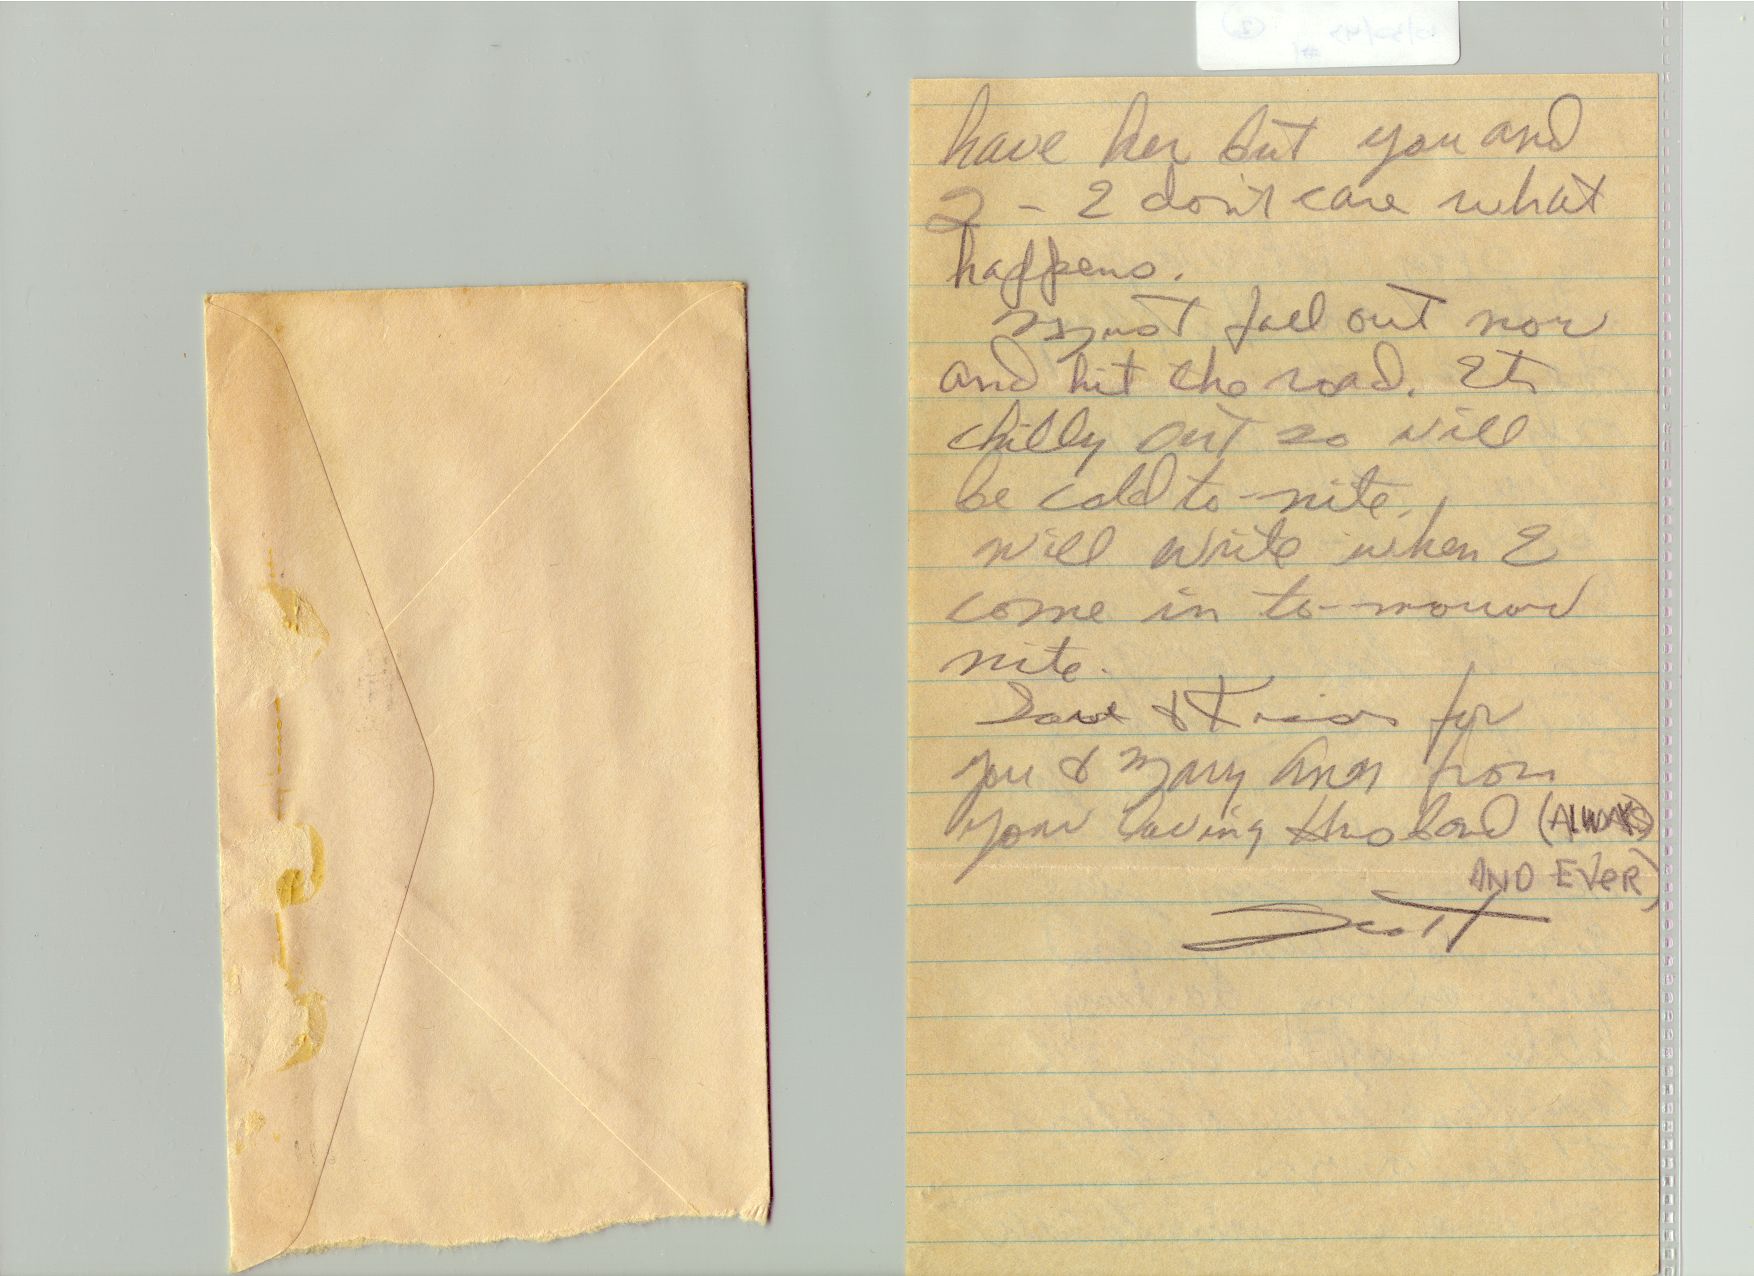 have her but you and
I - I don't care what
happens.
Must fall out now
and hit the road. Its
chilly out so will
be cold to-nite.
will write when I
come in to-morrow
nite.
Love & Kisses for
you & Mary Ann from
your loving Husband (ALWAYS
AND EVER)
Scott